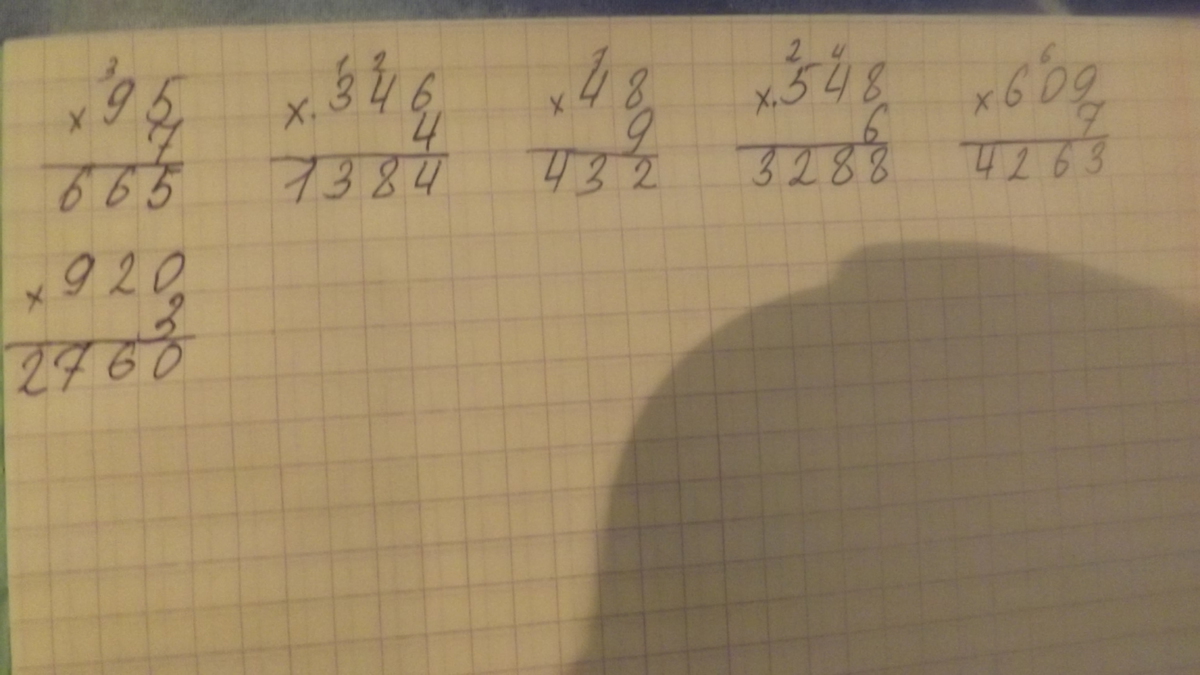 3 1 2 7 2 4 6
× 95 ×. 346 × 48 ×. 548 × 609
7 4 9 6 7
665 1384 432 3288 4263
× 920
3
2760